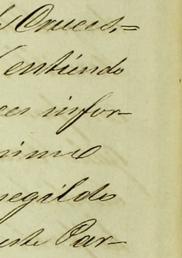 Cruces,=
entiendo
infor-
nimo
negildo
este Par-